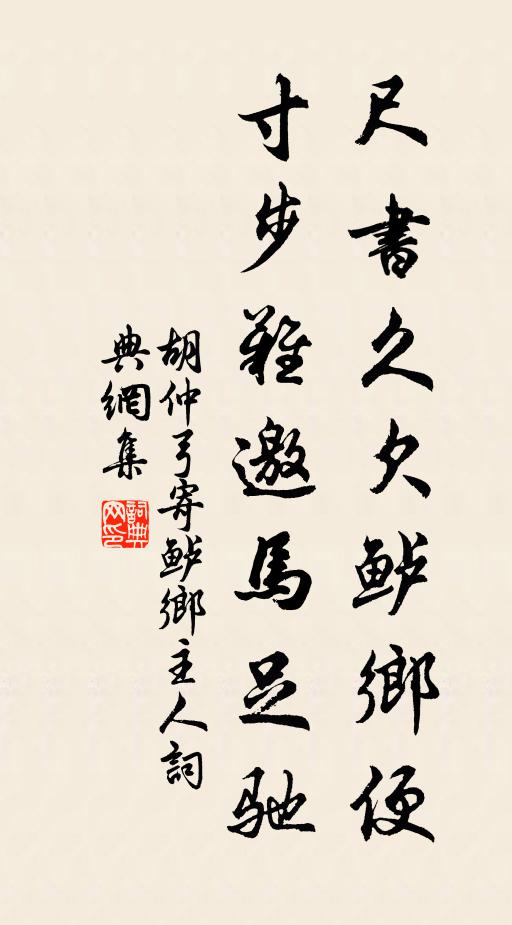 尺書久欠鲈鄉便
寸步難邀馬足馳
胡仲弓寄鲈鄉主人詞
典網集
詞典
网印